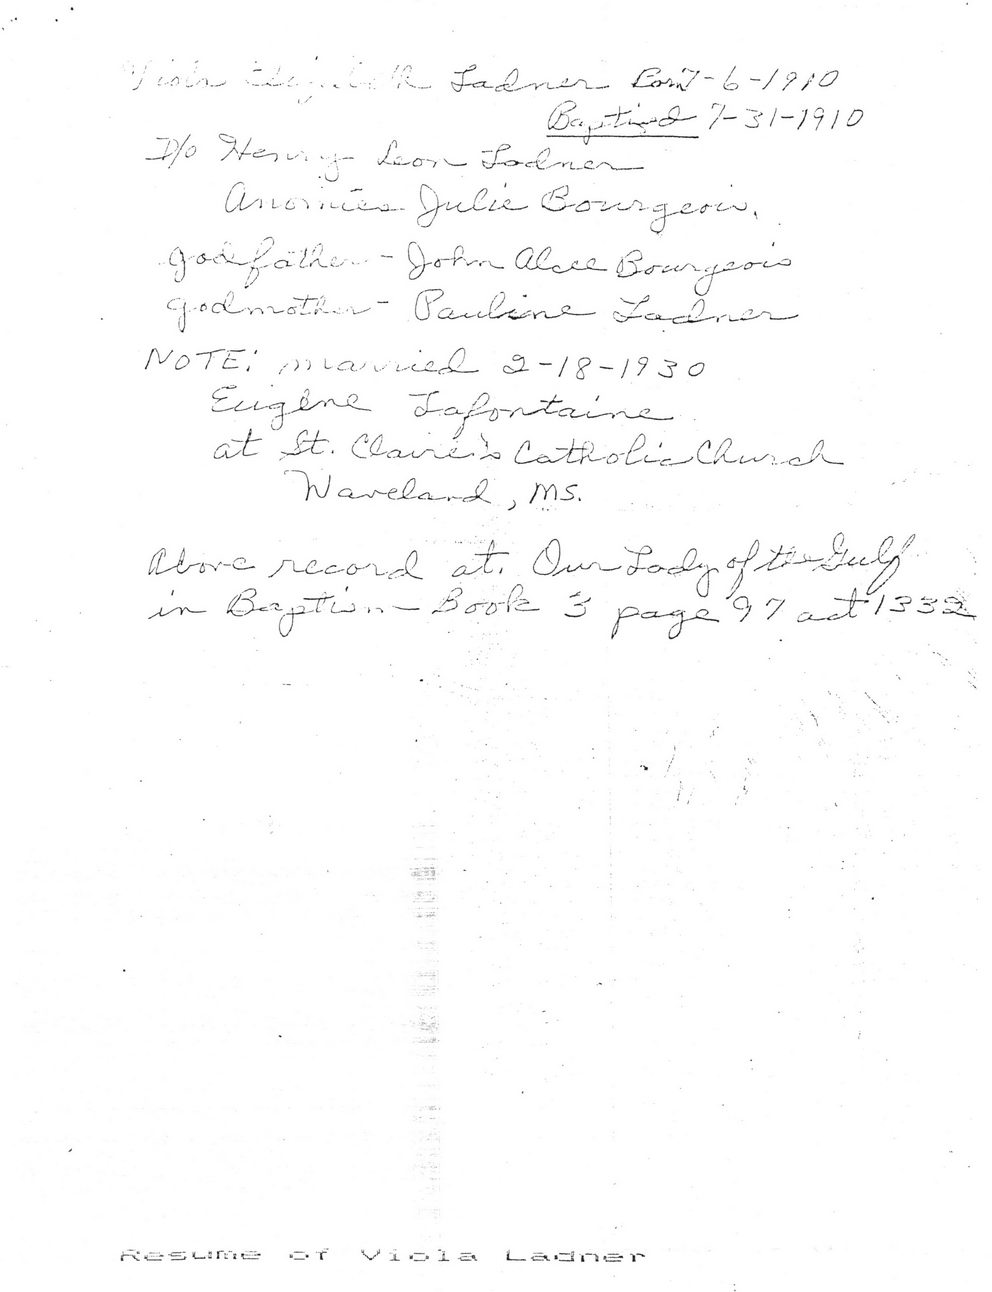 Viola Elizabeth Ladner Born 7-6-1910
Baptized 7-31-1910
D/o Henry Leon Ladner
Anomies Julie Bourgeois.
godfather - John Alcee Bourgeois
godmother - Pauline Ladner
NOTE: married 2-18-1930
Eugene Lafontaine
at St. Claire's Catholic Church
Waveland, MS.
Above record at. Our Lady of the Gulf
in Baptism Book 3 page 97 act 1332
Resume of Viola Ladner